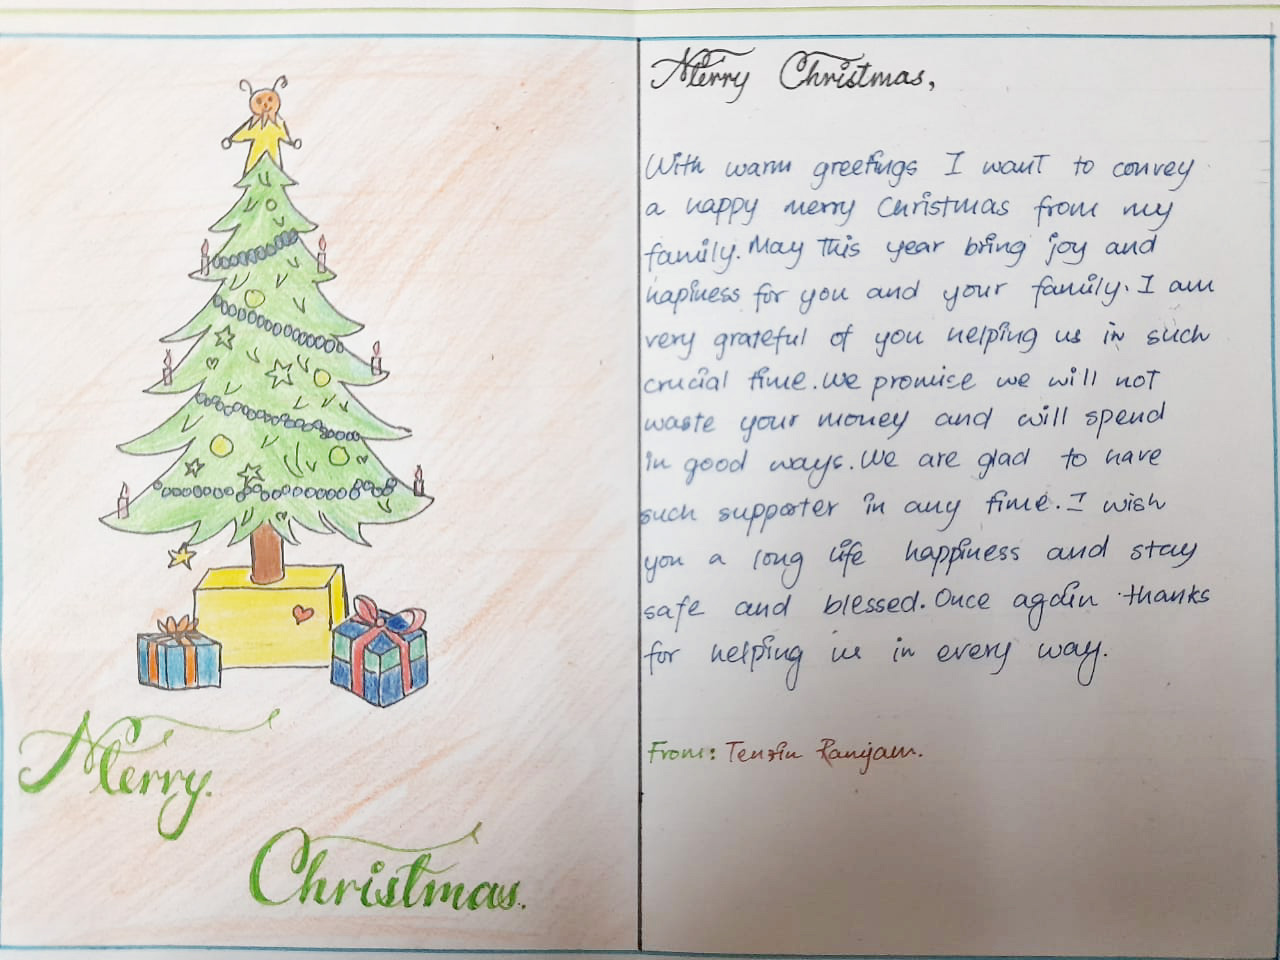 Merry
Christmas.
Merry Christmas,
With warm greetings I want to convey
a happy merry Christmas from my
family. May this year bring joy and
hapiness for you and your family. I am
very grateful of you helping us in such
crucial time. We promise we will not
waste your money and will spend
in good ways. We are glad to have
such supporter in any time. I wish
you a long life happiness and stay
safe and blessed. Once again thanks
for helping us in every way.
From: Tenzin